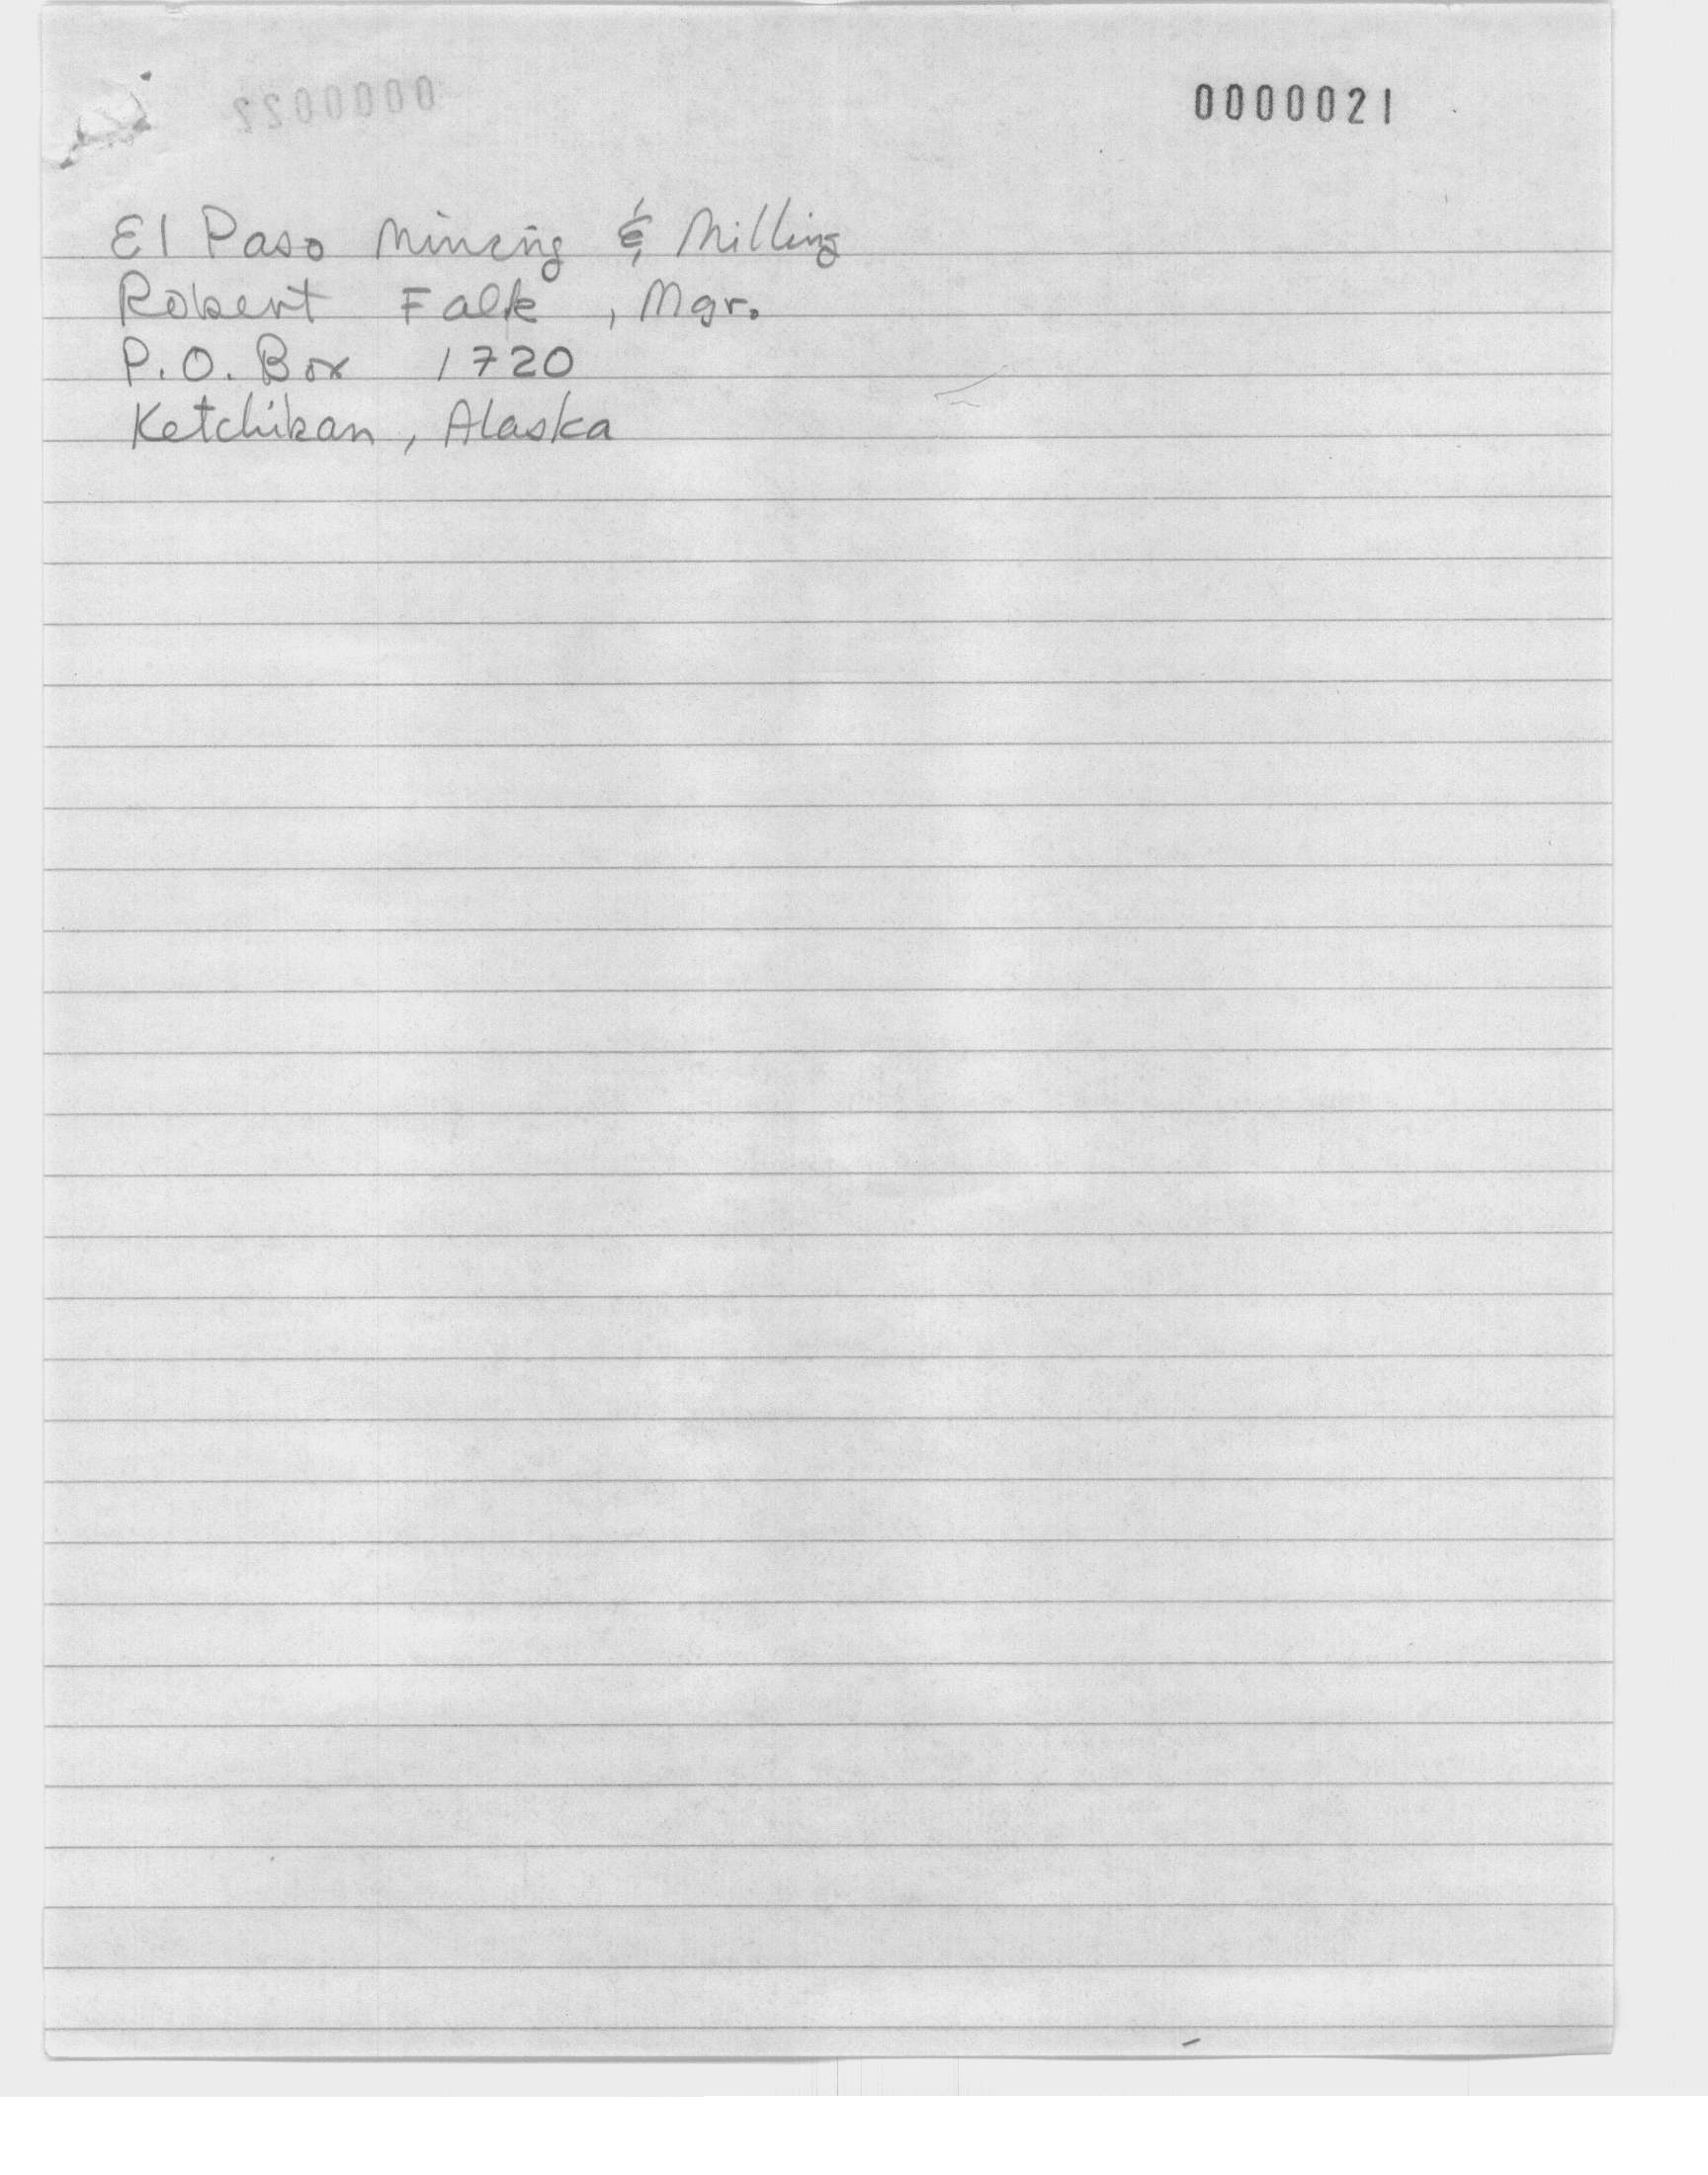 0000021
0000022
El Paso Mining & Milling
Robert Falk, Mgr.
P.O. Box 1720
Ketchikan, Alaska